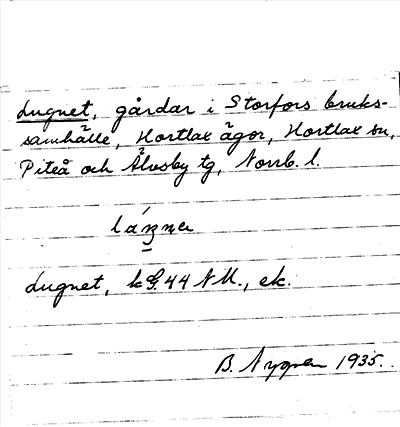 Lugnet, gårdar i Storfors bruks-
samhälle, Hortlax ägor, Hortlax sn,
Piteå och Älvsby tg, Norrb. l.
Lugnet, k G.44 NU., ek.
B. Nygren 1935.